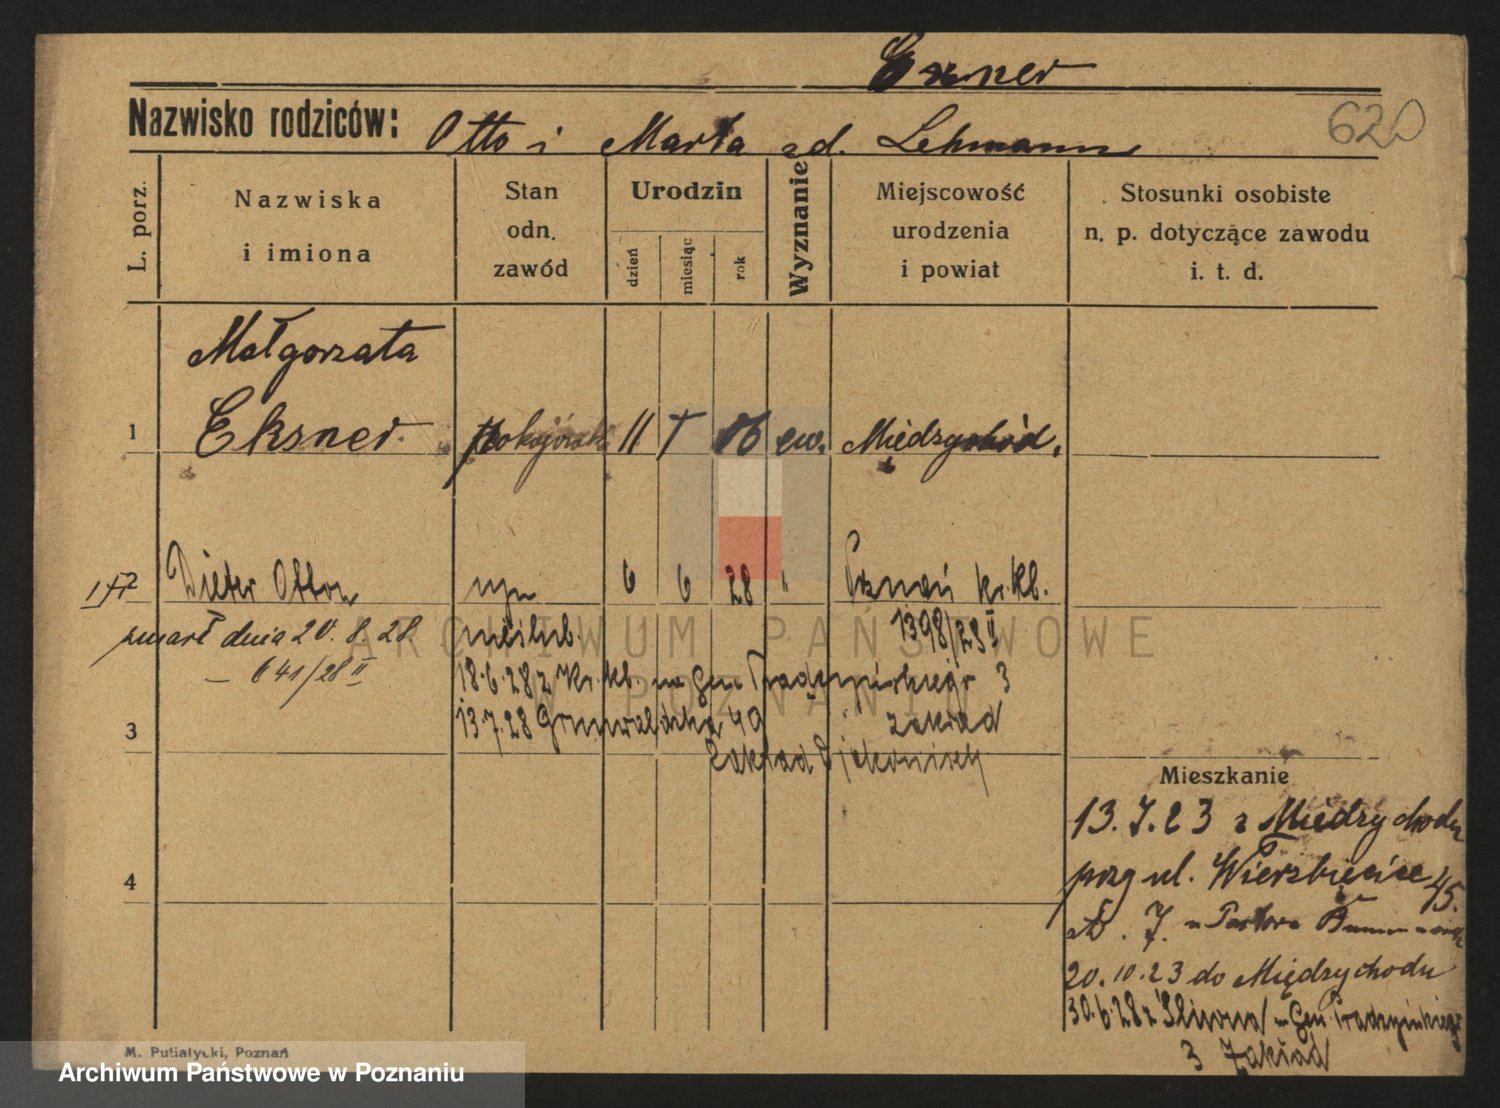 Exner
620
Nazwisko rodziców: Otto i Marta zd. Lehmann
L. porz.
Nazwiska
i imiona
Stan
odn.
zawód
Urodzin
dzień
miesiąc
rok
Wyznanie
Miejscowość
urodzenia
i powiat
Stosunki osobiste
n. p. dotyczące zawodu
i. t. d.
Małgorzata
1 Eksner pokojówk 11 06 ew. Międzychód.
2 Dieter Otton syn 6 6 28 " Poznań kr. kb.
zmarł dnia 20.8.28 nieślub. 1398/28 II
— 641/28 II
18.6.28 z Kr. kb. Gen Prądzyńskiego 3
3 13.7.28 Grunwaldzka 49 zakład
Zakład Djakonisek
Mieszkanie
13.7.23 z Międzychodu
przy ul. Wierzbięcice 45.
7. u Pastora
20.10.23 do Międzychodu
30.6.28 z Gen Prądzyńskiego
3 Zakład
4
M. Putiatycki, Poznań
ARCHIWUM PAŃSTWOWE
W POZNANIU
Archiwum Państwowe w Poznaniu